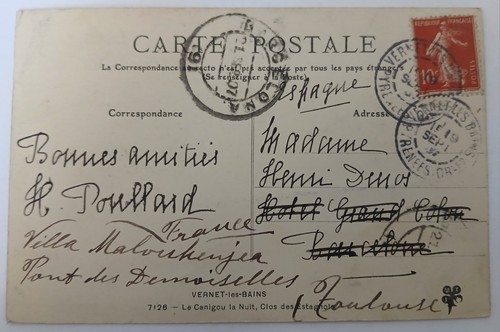 CARTE POSTALE
La Correspondance au recto n'est pas acceptée par tous les pays étrangers
(Se renseigner à la Poste)
Correspondance
Adresse
Espagne
Bonnes amitiés
H. Poullard
Madame
Henri Denos
Hotel Grand Colon
Barcelone
France
Villa
Pont des Demoiselles
(Toulouse)
VERNET-les-BAINS
7126 - Le Canigou la Nuit, Clos des Estagnots
REPUBLIQUE FRANÇAISE
10
POSTES
BARCELONA